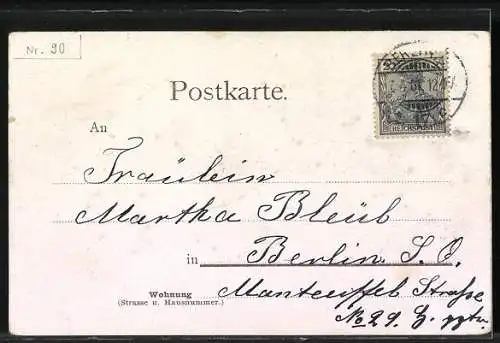 Nr. 90
Postkarte.
REICHSPOST
An
Fräulein
Martha Bleüb
in Berlin S. O.
Wohnung
(Strasse u. Hausnummer.)
Manteuffel Straße
No 29.